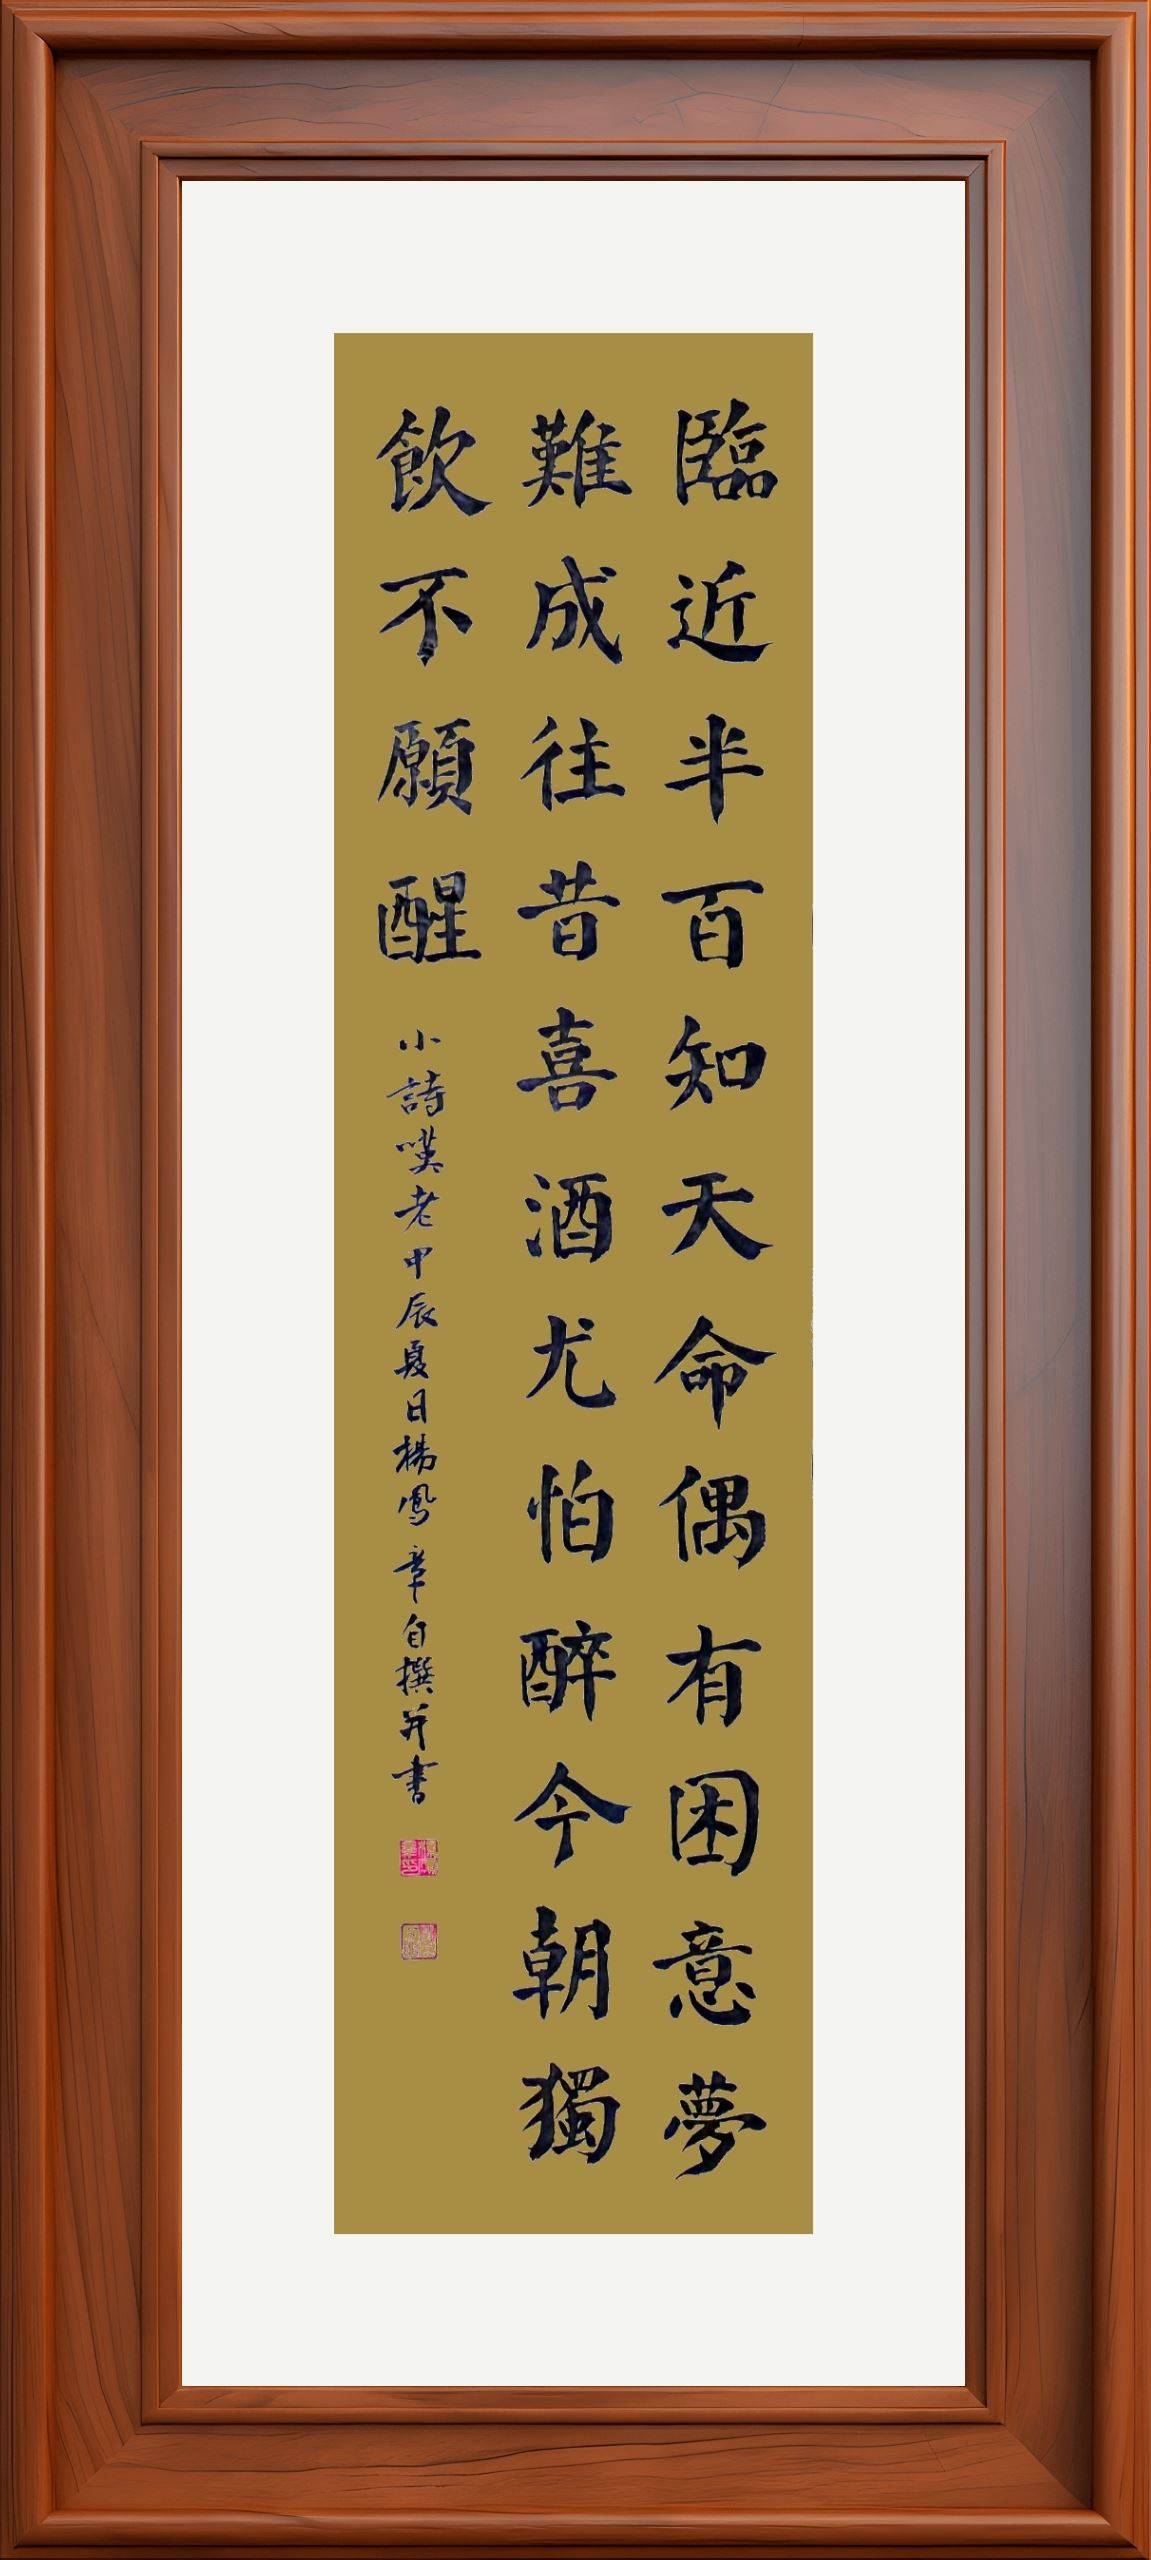 臨近半百知天命偶有困意夢
難成往昔喜酒尤怕醉今朝獨
飲不願醒
小詩嘆老甲辰夏日楊鳳章自撰并書